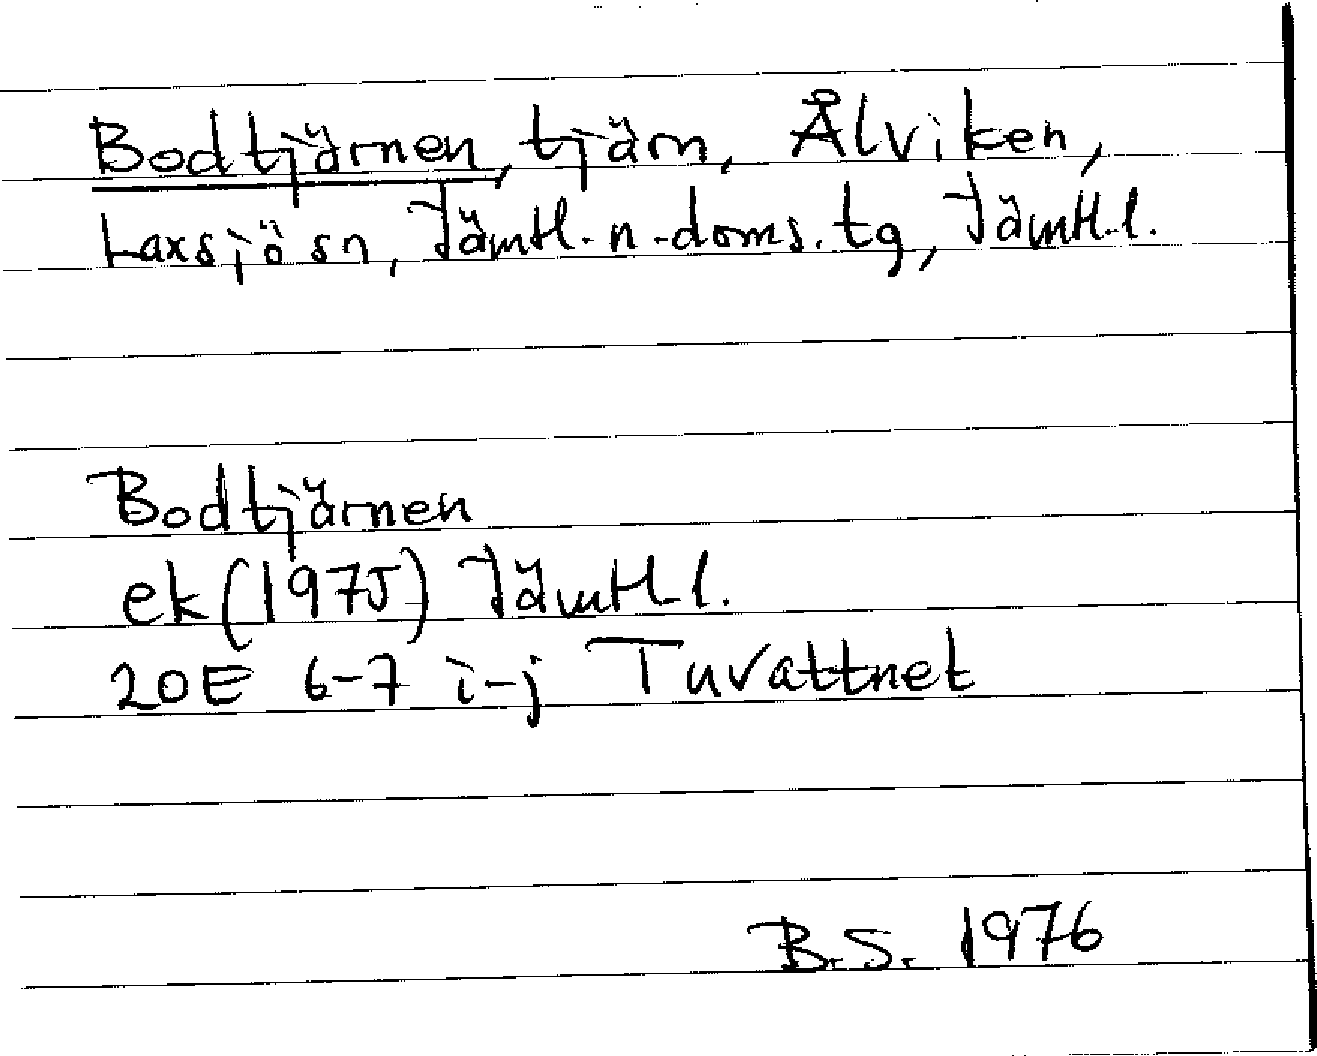 Bodtjärnen, tjärn, Ålviken,
Laxsjö sn, Jämtl. n. doms. tg, Jämtl. l.
Bodtjärnen
ek (1975) Jämtl. l.
20E 6-7 i-j Tuvattnet
B.S. 1976